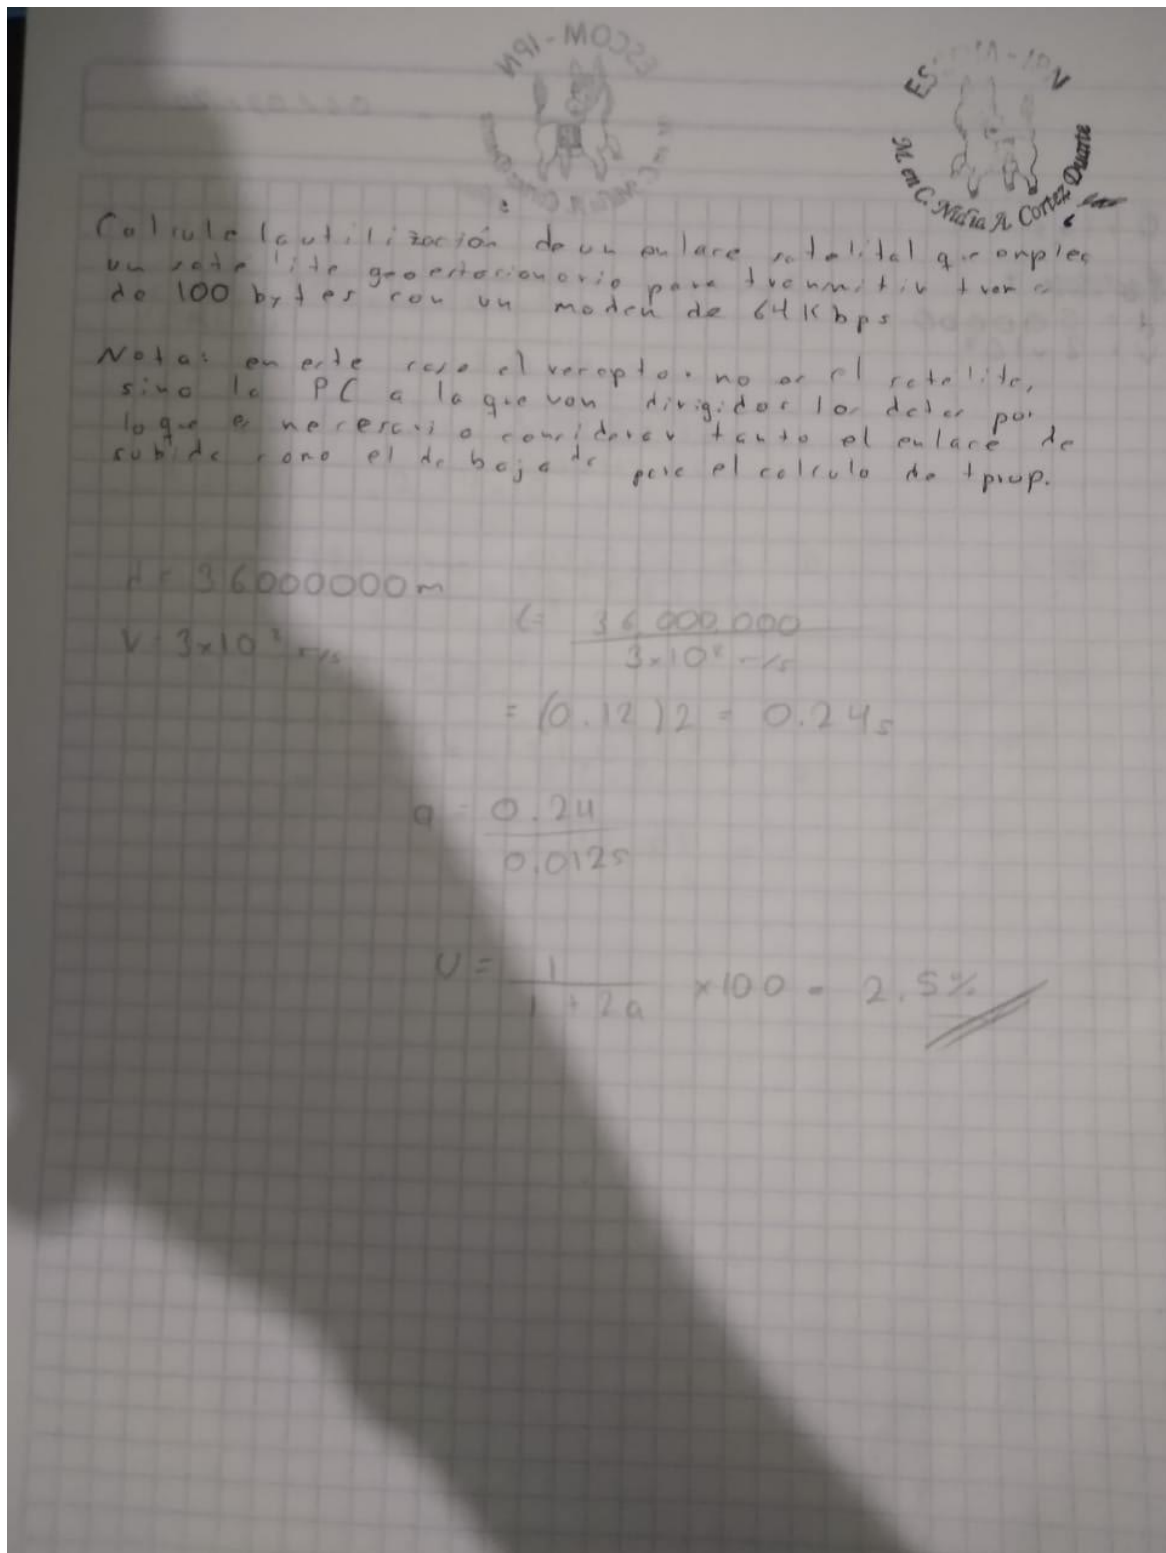 ESCOM-IPN
M. en C. Nidia A. Cortez Duarte
Calcule la utilización de un enlace satelital que emplea
un satelite geoestacionario para transmitir trama
de 100 bytes con un modem de 64 Kbps
Nota: en este caso el receptor no es el satelite,
sino la PC a la que van dirigidos los datos por
lo que es necesario considerar tanto el enlace de
subida como el de bajada para el calculo de tprop.
d = 36000000m
V = 3x10⁸ m/s
t = 36 000 000
3x10⁸ m/s
= (0.12)2 = 0.24s
a = 0.24
0.0125
U = 1
1 + 2a
x100 = 2.5%